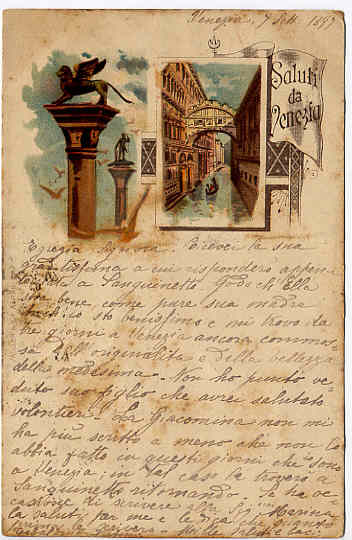 Venezia, 7 Sett. 1897
Saluti
da
Venezia
Egregia Signora Ricevei la sua
gratissima a cui risponderò appena
a Sanguinetto Godo ch'Ella
stia bene, come pure sua madre
sto benissimo e mi trovo da
tre giorni a Venezia ancora commos
sa dell'originalità e della bellezza
della medesima. Non ho punto ve
duto suo figlio che avrei salutato
volontieri. La Giacomina non mi
ha più scritto a meno che non lo
abbia fatto in questi giorni che sono
a Venezia; in tal caso la troverò a
Sanguinetto ritornando. Se ha oc
casione di scrivere alla Sig. Marina
la saluti per me e le dica che quanto
prima le scriverò. Mille